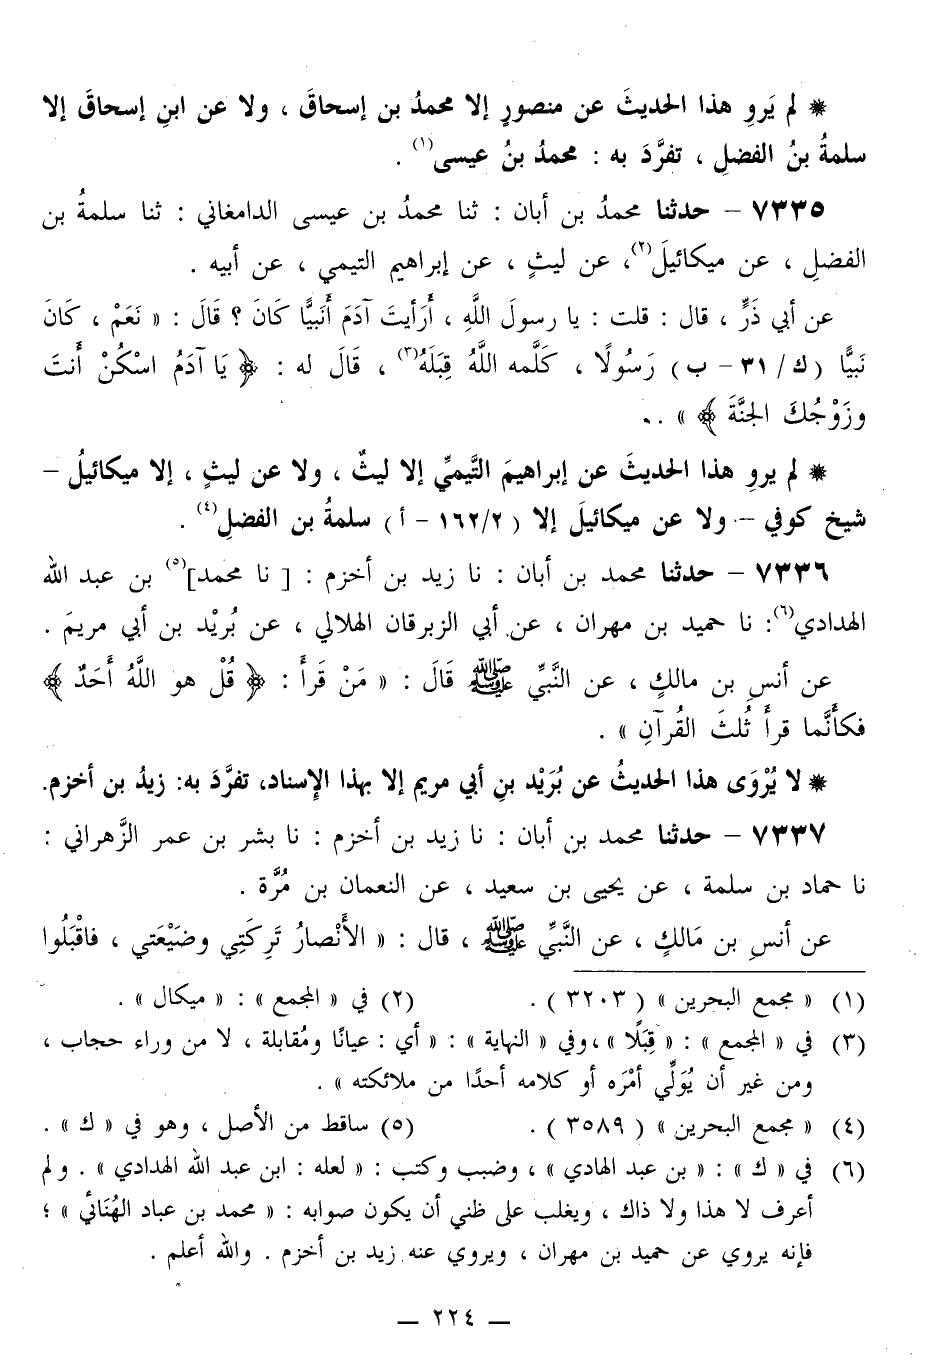 * لم يَروِ هذا الحديثَ عن منصورٍ إلا محمدُ بن إسحاقَ ، ولا عن ابنِ إسحاقَ إلا
سلمةُ بنُ الفضلِ ، تفرَّدَ به : محمدُ بنُ عيسى(١) .
٧٣٣٥ – حدثنا محمدُ بن أبان : ثنا محمدُ بن عيسى الدامغاني : ثنا سلمةُ بن
الفضلِ ، عن ميكائيلَ(٢)، عن ليثٍ ، عن إبراهيم التيمي ، عن أبيه .
عن أبي ذَرٍّ ، قال : قلت : يا رسولَ اللَّهِ ، أَرَأيتَ آدَمَ أَنَبيًّا كَانَ ؟ قَالَ : « نَعَمْ ، كَانَ
نَبيًّا (ك / ٣١ – ب) رَسُولًا ، كَلَّمه اللَّهُ قِبَلَهُ(٣) ، قَالَ له : ﴿ يَا آدَمُ اسْكُنْ أَنتَ
وزَوْجُكَ الجنَّةَ ﴾ » . .
* لم يرو هذا الحديثَ عن إبراهيمَ التَّيميِّ إلا ليثٌ ، ولا عن ليثٍ ، إلا ميكائيلُ –
شيخ كوفي – ولا عن ميكائيلَ إلا ( ١٦٢/٢ – أ ) سلمةُ بن الفضلِ(٤) .
٧٣٣٦ – حدثنا محمد بن أبان : نا زيد بن أخزم : [ نا محمد](٥) بن عبد الله
الهدادي(٦): نا حميد بن مهران ، عن أبي الزبرقان الهلالي ، عن بُرَيْد بن أبي مريمَ .
عن أنسِ بن مالكٍ ، عن النَّبيِّ ﷺ قَالَ : « مَنْ قَرأَ : ﴿ قُلْ هو اللَّهُ أَحَدٌ ﴾
فكأَنَّما قرأَ ثُلثَ القُرآنِ » .
* لا يُرْوَى هذا الحديثُ عن بُرَيْد بنِ أبي مريم إلا بهذا الإسناد، تفرَّدَ به: زيدُ بن أخزم.
٧٣٣٧ – حدثنا محمد بن أبان : نا زيد بن أخزم : نا بشر بن عمر الزَّهراني :
نا حماد بن سلمة ، عن يحيى بن سعيد ، عن النعمان بن مُرَّة .
عن أنسِ بن مَالكٍ ، عن النَّبيِّ ﷺ ، قال : « الأَنْصارُ تَرِكَتِي وضَيْعَتي ، فاقْبَلُوا
(١) « مجمع البحرين » ( ٣٢٠٣ ) . (٢) في « المجمع » : « ميكال » .
(٣) في « المجمع » : « قِبَلًا » ، وفي « النهاية » : « أي : عيانًا ومُقابلة ، لا من وراء حجاب ،
ومن غير أن يُوَلِّي أمْرَه أو كلامه أحدًا من ملائكته » .
(٤) « مجمع البحرين » ( ٣٥٨٩ ) . (٥) ساقط من الأصل ، وهو في « ك » .
(٦) في « ك » : « بن عبد الهادي » ، وضبب وكتب : « لعله : ابن عبد الله الهدادي » . ولم
أعرف لا هذا ولا ذاك ، ويغلب على ظني أن يكون صوابه : « محمد بن عباد الهُنَائي » ؛
فإنه يروي عن حميد بن مهران ، ويروي عنه زيد بن أخزم . والله أعلم .
— ٢٢٤ —